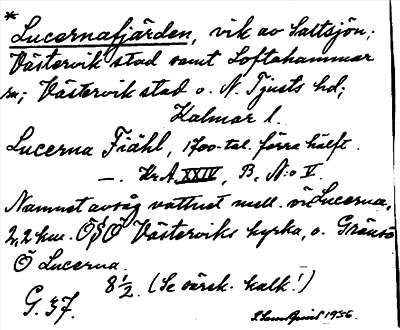 *
Lucernafjärden, vik av Saltsjön;
Västervik stad samt Loftahammar
sn; Västervik stad o. N. Tjusts hd;
Kalmar l.
Lucerna Fiähl, 1700-tal. förra hälft.
—. Kr A XXIV, B, N:o V.
Namnet avsåg vattnet mell. ön Lucerna,
2,2 km. ÖSÖ Västerviks kyrka, o. Gränsö
Ö Lucerna.
8½. (Se särsk. kalk!)
G. 37. 1956.